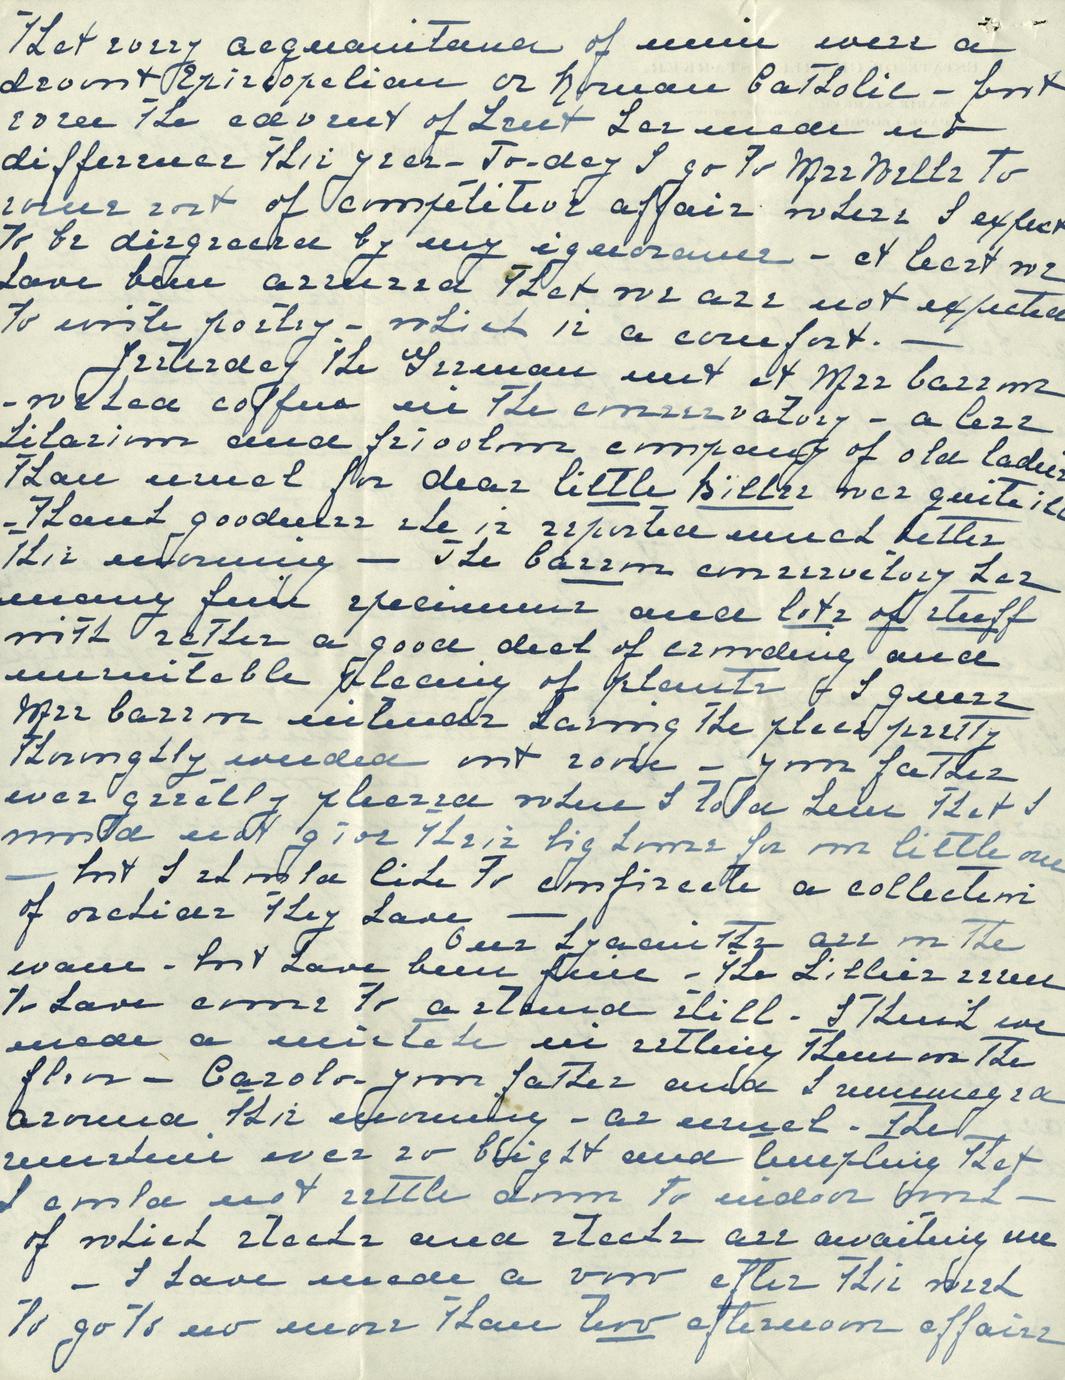 That every acquaintance of mine were a
devout Episcopalian or Roman Catholic - but
even the advent of Lent has made no
difference this year - To-day I go to Mrs Wells to
some sort of competitive affair where I expect
to be disgraced by my ignorance - at least we
have been assured that we are not expected
to write poetry - which is a comfort. —
Yesterday the German met at Mrs Barrow
- we had coffee in the conservatory - a less
hilarious and frivolous company of old ladies
than usual for dear little Biller was quite ill
- Thank goodness she is reported much better
this morning — The Barrow conservatory has
many fine specimens and lots of stuff
with rather a good deal of crowding and
unsuitable placing of plants & I guess
Mrs Barrow intends having the place pretty
thoroughly weeded out soon - your father
was greatly pleased when I told him that I
would not give their big house for our little one
— but I should like to confiscate a collection
of orchids they have —
Our hyacinths are on the
wane - but have been fine - The Lillies seem
to have come to a stand still - I think we
made a mistake in setting them on the
floor - Carolo - your father and I rummaged
around this morning - as usual - The
sunshine was so bright and tempting that
I could not settle down to indoor work —
of which stacks and stacks are awaiting me
- I have made a vow after this week
to go to no more than two afternoon affairs